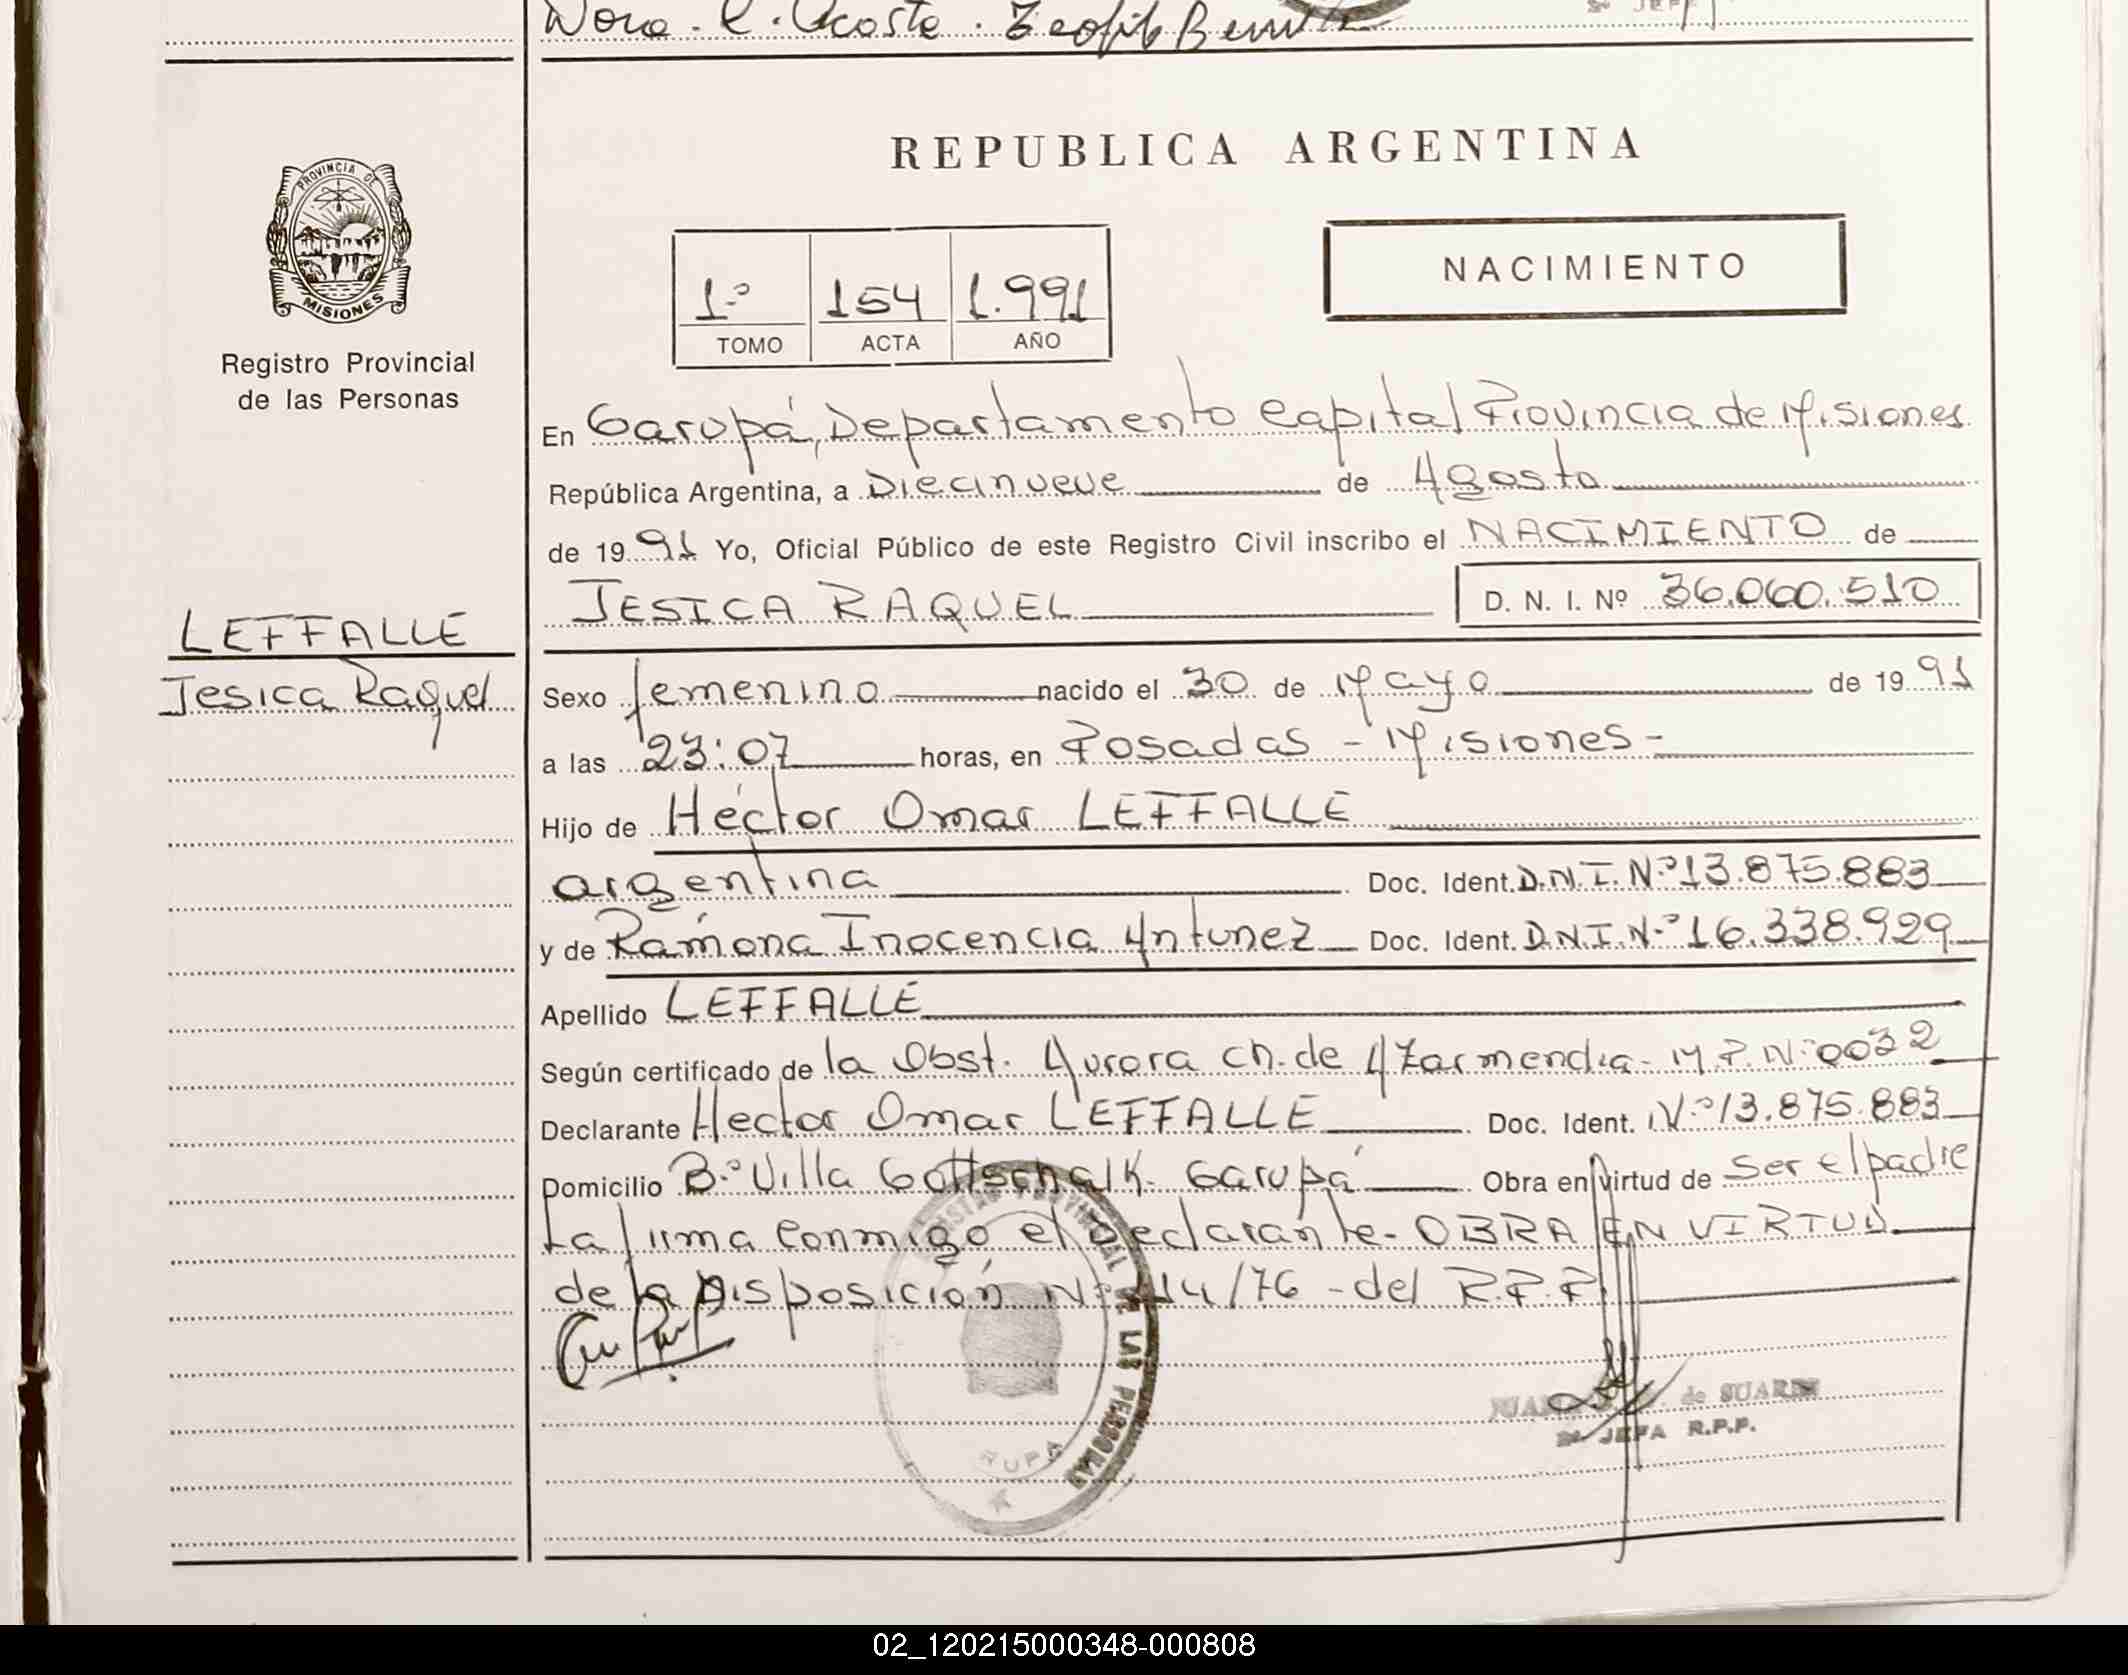 Nora. R. Acosta. Teofilo
PROVINCIA DE
MISIONES
Registro Provincial
de las Personas
LEFFALLE
Jesica Raquel
REPUBLICA ARGENTINA
1º 154 1.991
TOMO ACTA AÑO
NACIMIENTO
En Garupá, Departamento Capital Provincia de Misiones
República Argentina, a Diecinueve de Agosto
de 1991 Yo, Oficial Público de este Registro Civil inscribo el NACIMIENTO de
JESICA RAQUEL D. N. I. Nº 36.060.510
Sexo femenino nacido el 30 de Mayo de 1991
a las 23:07 horas, en Posadas - Misiones -
Hijo de Héctor Omar LEFFALLE
argentina Doc. Ident. D.N.I. Nº 13.875.883
y de Ramona Inocencia Antunez Doc. Ident. D.N.I. Nº 16.338.929
Apellido LEFFALLE
Según certificado de la Obst. Aurora Ch. de Azarmendia - M.P. Nº 0032
Declarante Hector Omar LEFFALLE Doc. Ident. Nº 13.875.883
Domicilio Bº Villa Gottschalk - Garupá Obra en virtud de Ser el padre
La firma conmigo el declarante - OBRA EN VIRTUD
de la Disposición Nº 414/76 - del R.P.P.
REGISTRO PROVINCIAL DE LAS PERSONAS
JUANA de SUAREZ
2ª JEFA R.P.P.
02_120215000348-000808